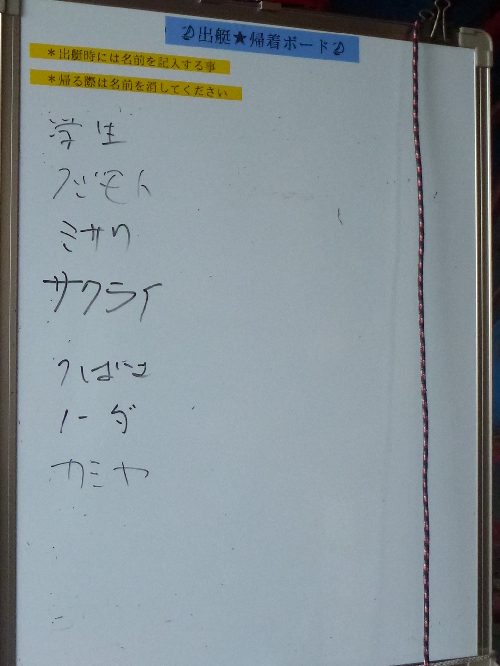 出艇★帰着ボード
＊出艇時には名前を記入する事
＊帰る際は名前を消してください
学生
フジモト
ミサワ
サクライ
ノーダ
カミヤ